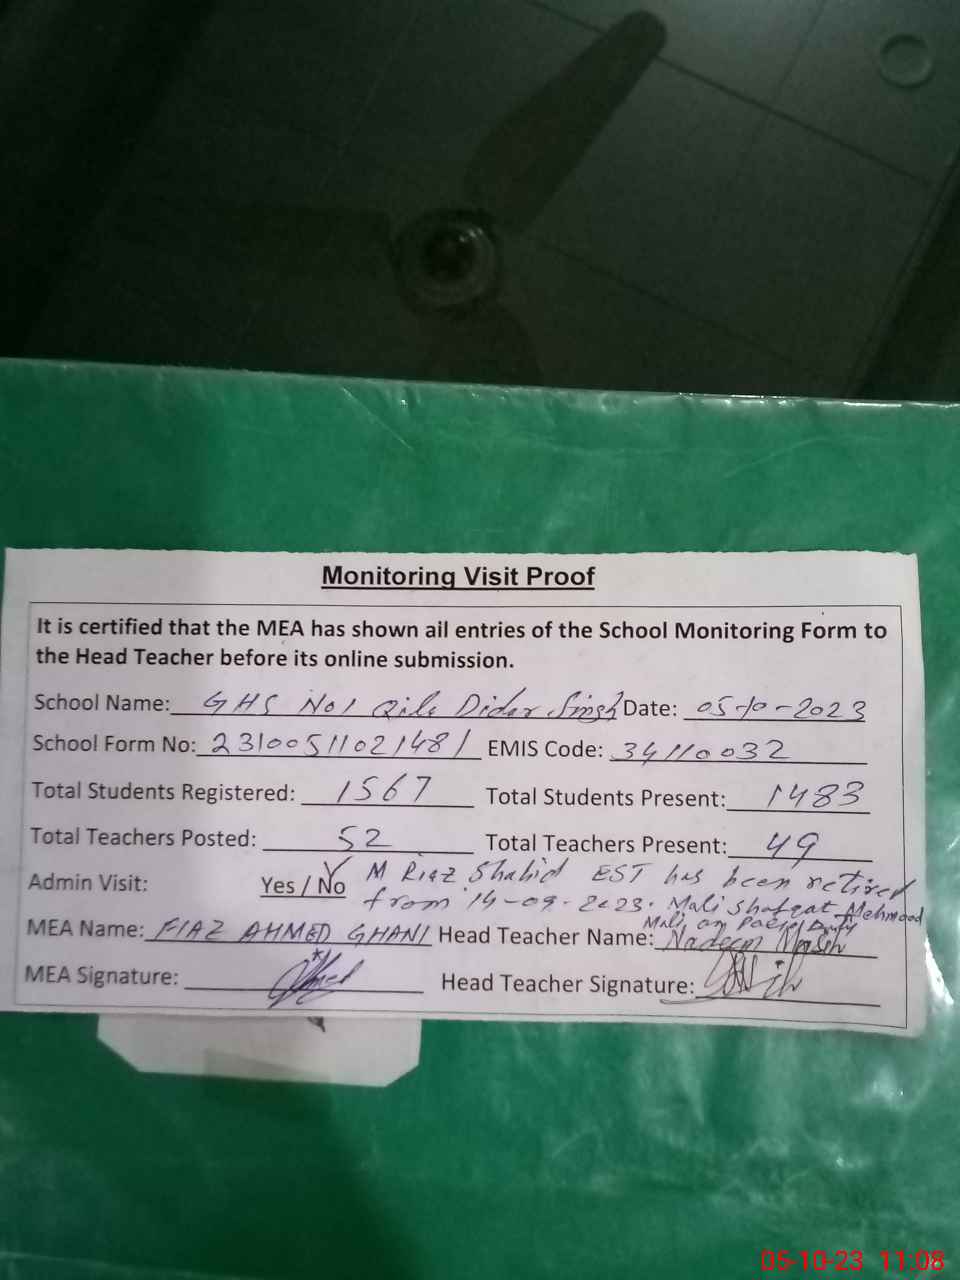 Monitoring Visit Proof
It is certified that the MEA has shown all entries of the School Monitoring Form to
the Head Teacher before its online submission.
School Name: GHS No1 Qila Didar Singh Date: 05-10-2023
School Form No: 23100511021481 EMIS Code: 34110032
Total Students Registered: 1567 Total Students Present: 1483
Total Teachers Posted: 52 Total Teachers Present: 49
Admin Visit: Yes / No M Riaz Shahid EST has been retired
from 14-09-2023. Mali Shafqat Mehmood
Mali on Duty
MEA Name: FIAZ AHMED GHANI Head Teacher Name: Nadeem Masih
MEA Signature: Head Teacher Signature:
05-10-23 11:08